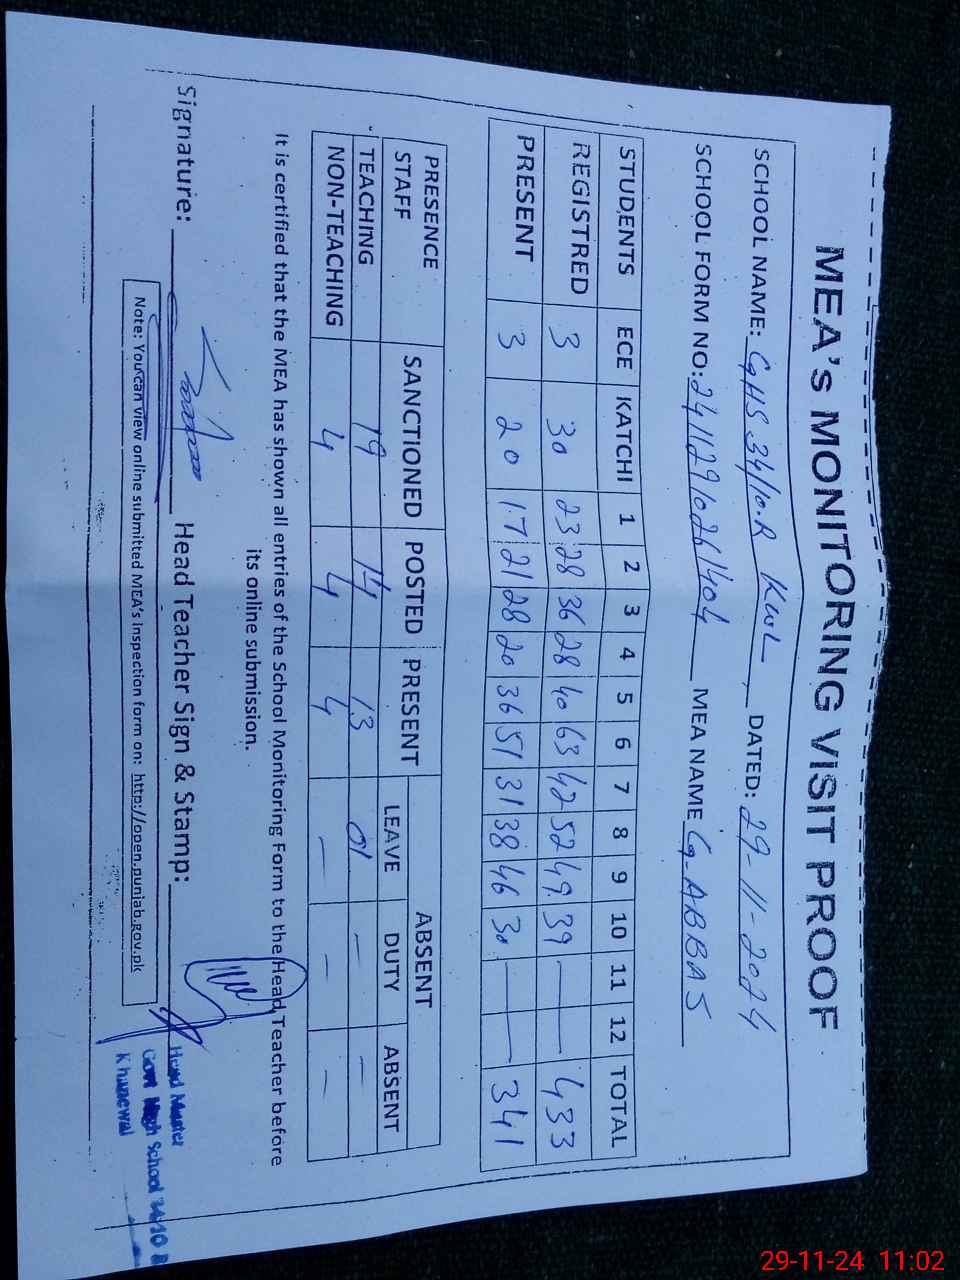 MEA's MONITORING VISIT PROOF
SCHOOL NAME: GHS 34/10.R Kwl, DATED: 29-11-2024
SCHOOL FORM NO: 241129102611404 MEA NAME G-ABBAS
STUDENTS ECE KATCHI 1 2 3 4 5 6 7 8 9 10 11 12 TOTAL
REGISTRED 3 30 23 28 36 28 40 63 42 52 49 39 — — 433
PRESENT 3 20 17 21 28 20 36 51 31 38 46 30 — — 341
PRESENCE STAFF SANCTIONED POSTED PRESENT ABSENT
LEAVE DUTY ABSENT
TEACHING 19 14 13 01 — —
NON-TEACHING 4 4 4 — — —
It is certified that the MEA has shown all entries of the School Monitoring Form to the Head Teacher before
its online submission.
Signature: Head Teacher Sign & Stamp:
Head Master
Govt High School 34/10 R
Khanewal
Note: You can view online submitted MEA's Inspection form on: http://open.punjab.gov.pk
29-11-24 11:02